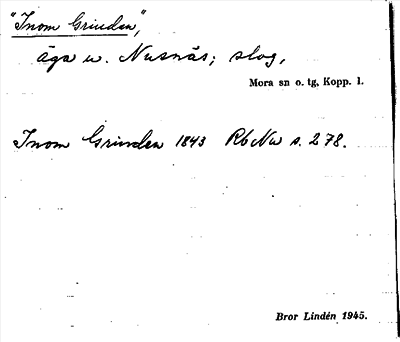 "Inom Grinden",
äga u. Nusnäs; slog,
Mora sn o. tg, Kopp. l.
Inom Grinden 1843 RbNu s. 278.
Bror Lindén 1945.